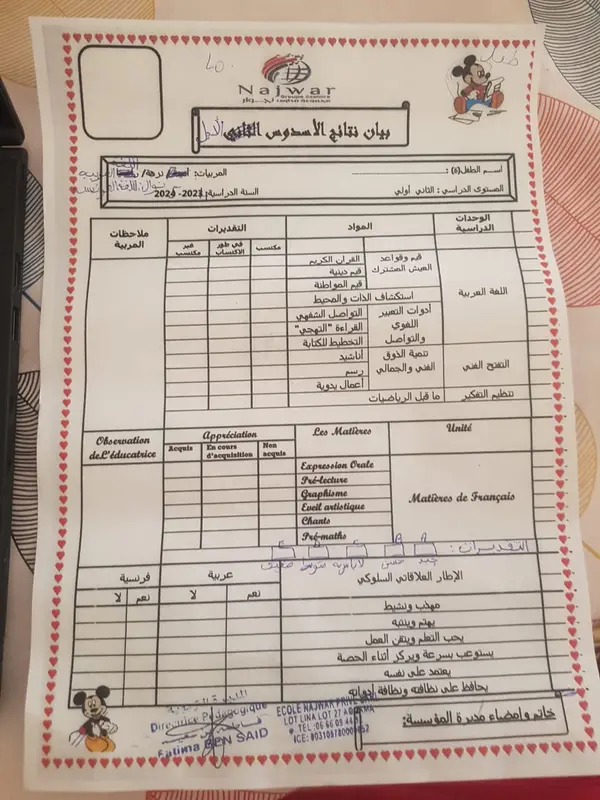 طفل
Najwar
Groupe Scolaire
مجموعة مدارس نجوار
بيان نتائج الأسدوس الثاني الأول
اسم الطفل(ة) :
المربيات: نزهة/
اللغة العربية
نوال: اللغة الفرنسية
المستوى الدراسي : الثاني أولي
السنة الدراسية: 2023- 2024
الوحدات الدراسية
المواد
التقديرات
ملاحظات المربية
مكتسب
في طور الاكتساب
غير مكتسب
اللغة العربية
قيم وقواعد العيش المشترك
القران الكريم
قيم دينية
قيم المواطنة
استكشاف الذات والمحيط
أدوات التعبير اللغوي والتواصل
التواصل الشفهي
القراءة "التهجي"
التخطيط للكتابة
التفتح الفني
تنمية الذوق الفني والجمالي
أناشيد
رسم
أعمال يدوية
تنظيم التفكير
ما قبل الرياضيات
Observation de L'éducatrice
Appréciation
Les Matières
Unité
Acquis
En cours d'acquisition
Non acquis
Expression Orale
Pré-lecture
Graphisme
Eveil artistique
Chants
Pré-maths
Matières de Français
التقديرات :
A
B
C
D
E
جيد
حسن
لا بأس به
متوسط
ضعيف
الإطار العلاقاتي السلوكي
عربية
فرنسية
نعم
لا
نعم
لا
مهذب ونشيط
يهتم وينتبه
يحب التعلم ويتقن العمل
يستوعب بسرعة ويركز أثناء الحصة
يعتمد على نفسه
يحافظ على نظافته ونظافة أدواته
خاتم وامضاء مديرة المؤسسة:
Directrice Pédagogique
Fatima BEN SAID
ECOLE NAJWAR PRIVE
LOT LINA LOT 27 A